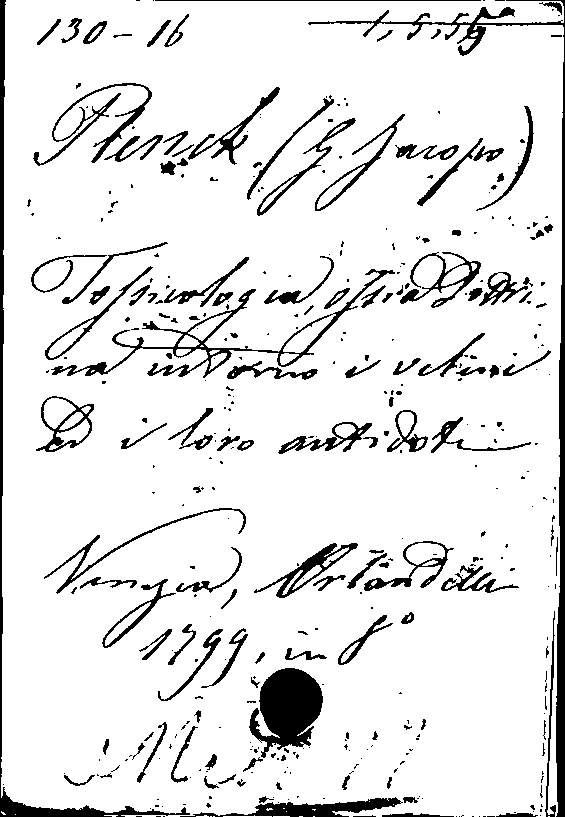 130-16 1,5,55
Plenck (G. Jacopo)
Tossicologia, ossia Dottri-
na intorno i veleni
ed i loro antidoti
Venezia, Orlandelli
1799, in 8°